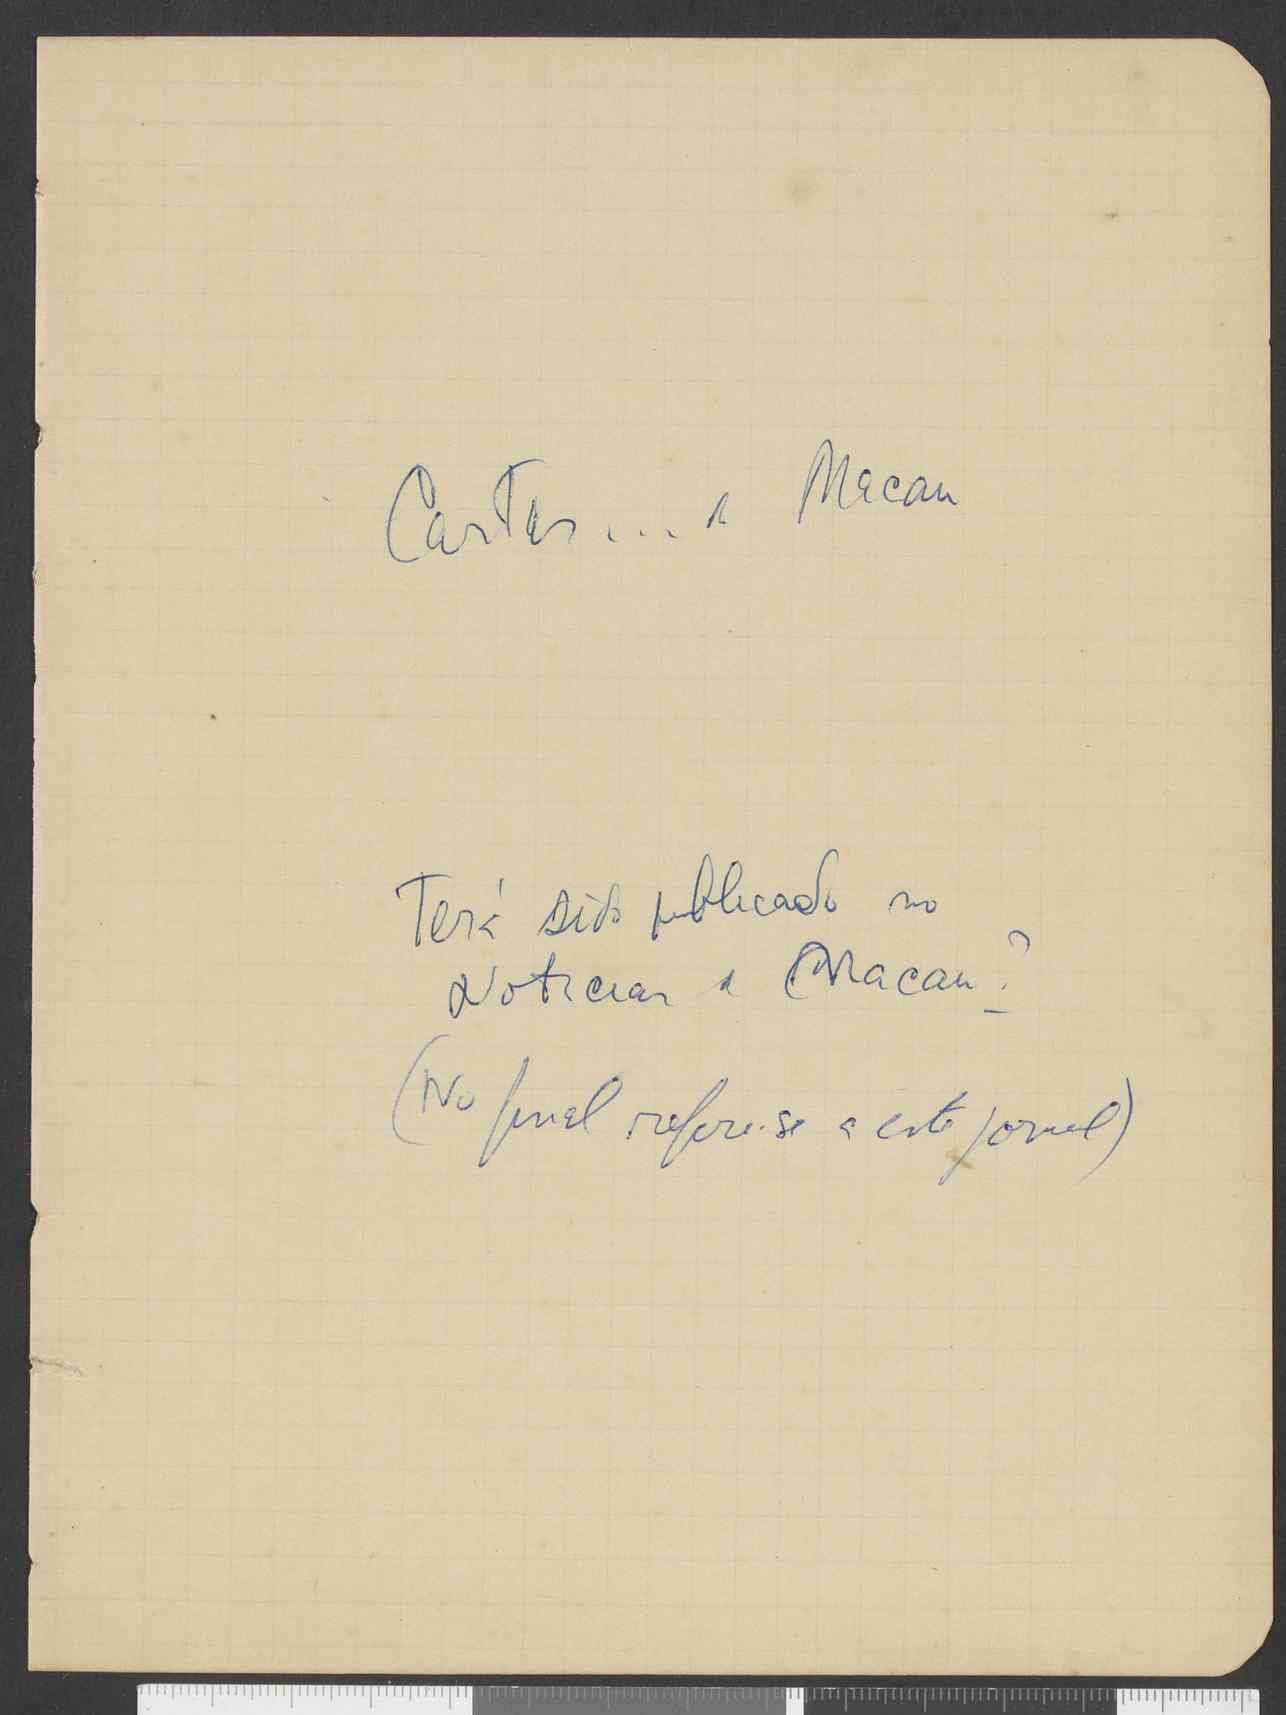 Cartas... de Macau
Terá sido publicado no
Noticias de Macau?
(No final refere-se a este jornal)